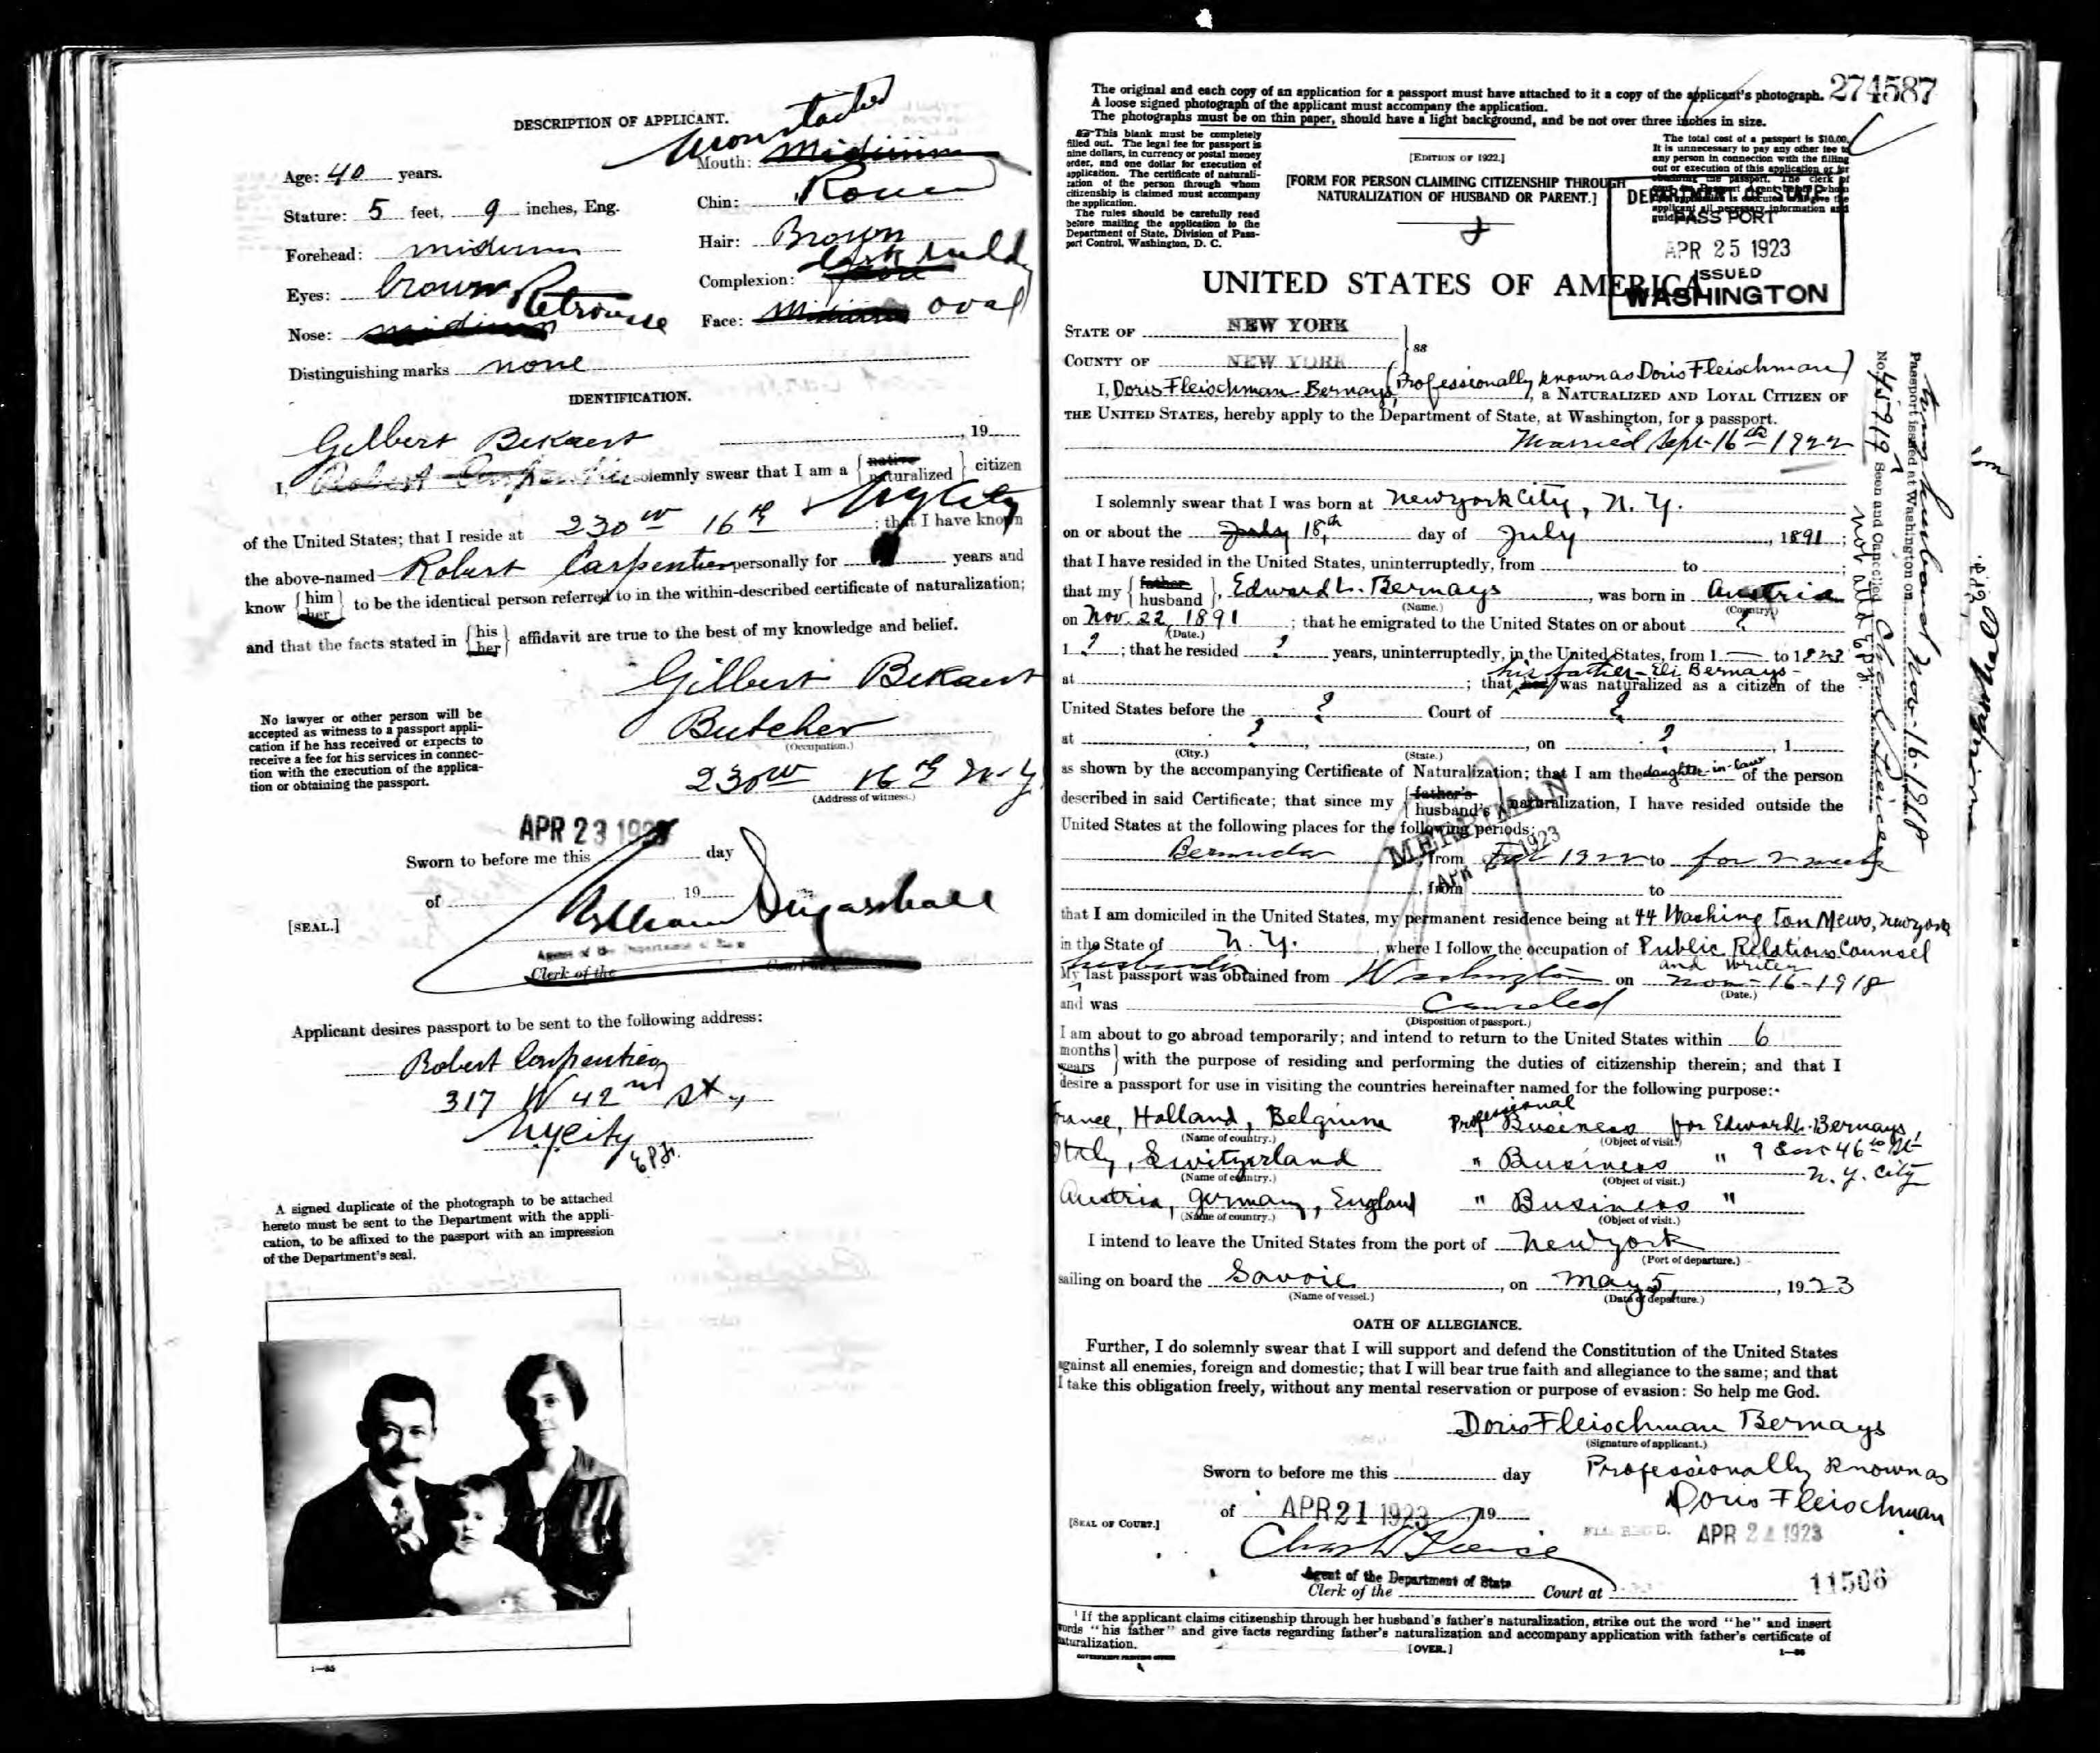 DESCRIPTION OF APPLICANT.
Moustached
Mouth:
Age: 40 years.
Stature: 5 feet, 9 inches, Eng.
Chin:
Forehead: midium
Hair: Brown
Eyes: brown
Complexion: dark ruddy
Nose: midium Retrousse
Face: midium oval
Distinguishing marks none
IDENTIFICATION.
Gilbert Bekaert , 19
I, Robert Carpentier solemnly swear that I am a { native naturalized } citizen
of the United States; that I reside at 230 W 16th NYCity ; that I have known
the above-named Robert Carpentier personally for years and
know { him her } to be the identical person referred to in the within-described certificate of naturalization;
and that the facts stated in { his her } affidavit are true to the best of my knowledge and belief.
Gilbert Bekaert
Butcher
(Occupation.)
230 W 16th N-Y
(Address of witness.)
No lawyer or other person will be
accepted as witness to a passport appli-
cation if he has received or expects to
receive a fee for his services in connec-
tion with the execution of the applica-
tion or obtaining the passport.
APR 23 1923
Sworn to before me this day
of , 19
[SEAL.]
William
Agent of the Department of State
Clerk of the Court at
Applicant desires passport to be sent to the following address:
Robert Carpentier
317 W 42nd St.,
NYCity
A signed duplicate of the photograph to be attached
hereto must be sent to the Department with the appli-
cation, to be affixed to the passport with an impression
of the Department's seal.
1—35
The original and each copy of an application for a passport must have attached to it a copy of the applicant's photograph. 274587
A loose signed photograph of the applicant must accompany the application.
The photographs must be on thin paper, should have a light background, and be not over three inches in size.
This blank must be completely
filled out. The legal fee for passport is
nine dollars, in currency or postal money
order, and one dollar for execution of
application. The certificate of naturali-
zation of the person through whom
citizenship is claimed must accompany
the application.
The rules should be carefully read
before mailing the application to the
Department of State, Division of Pass-
port Control, Washington, D. C.
[EDITION OF 1922.]
[FORM FOR PERSON CLAIMING CITIZENSHIP THROUGH
NATURALIZATION OF HUSBAND OR PARENT.]
The total cost of a passport is $10.00.
It is unnecessary to pay any other fee to
any person in connection with the filling
out or execution of this application or for
DEPARTMENT OF STATE
PASSPORT
APR 25 1923
ISSUED
WASHINGTON
UNITED STATES OF AMERICA
STATE OF NEW YORK
COUNTY OF NEW YORK } ss
I, Doris Fleischman Bernays (Professionally known as Doris Fleischman), a NATURALIZED AND LOYAL CITIZEN OF
THE UNITED STATES, hereby apply to the Department of State, at Washington, for a passport.
Married Sept-16th 1922
I solemnly swear that I was born at New York City, N.Y.
on or about the July 18th day of July , 1891;
that I have resided in the United States, uninterruptedly, from to ;
that my { father husband }, Edward L. Bernays , was born in Austria
(Name.) (Country.)
on Nov. 22, 1891 ; that he emigrated to the United States on or about ?
(Date.)
1 ? ; that he resided ? years, uninterruptedly, in the United States, from 1 — to 1923
his father Eli Bernays -
at ; that he was naturalized as a citizen of the
United States before the ? Court of ?
at ? , , on ? , 1
(City.) (State.)
as shown by the accompanying Certificate of Naturalization; that I am the daughter-in-law of the person
described in said Certificate; that since my { father's husband's } naturalization, I have resided outside the
United States at the following places for the following periods:
MERRIMAN
APR 1923
Bermuda , from 1922 to for 2 weeks
, from to
that I am domiciled in the United States, my permanent residence being at 44 Washington Mews, New York
in the State of N.Y. , where I follow the occupation of Public Relations Counsel
and Writer
husband's
My last passport was obtained from Washington on Nov-16-1918
(Date.)
and was Canceled
(Disposition of passport.)
I am about to go abroad temporarily; and intend to return to the United States within 6
{ months years } with the purpose of residing and performing the duties of citizenship therein; and that I
desire a passport for use in visiting the countries hereinafter named for the following purpose:
France, Holland, Belgium Professional Business for Edward L. Bernays,
(Name of country.) (Object of visit.)
Italy, Switzerland " Business " 9 East 46th St
N.Y. City
(Name of country.) (Object of visit.)
Austria, Germany, England " Business "
(Name of country.) (Object of visit.)
I intend to leave the United States from the port of New York
(Port of departure.)
sailing on board the Savoie , on May 5 , 1923
(Name of vessel.) (Date of departure.)
OATH OF ALLEGIANCE.
Further, I do solemnly swear that I will support and defend the Constitution of the United States
against all enemies, foreign and domestic; that I will bear true faith and allegiance to the same; and that
I take this obligation freely, without any mental reservation or purpose of evasion: So help me God.
Doris Fleischman Bernays
(Signature of applicant.)
Professionally known as
Doris Fleischman
Sworn to before me this day
of APR 21 1923, 19
[SEAL OF COURT.]
APR 24 1923
Agent of the Department of State
Clerk of the Court at
11506
¹ If the applicant claims citizenship through her husband's father's naturalization, strike out the word "he" and insert
words "his father" and give facts regarding father's naturalization and accompany application with father's certificate of
naturalization.
[OVER.]
GOVERNMENT PRINTING OFFICE
Passport issued at Washington on Nov-16-1918
No. Seen and Cancelled